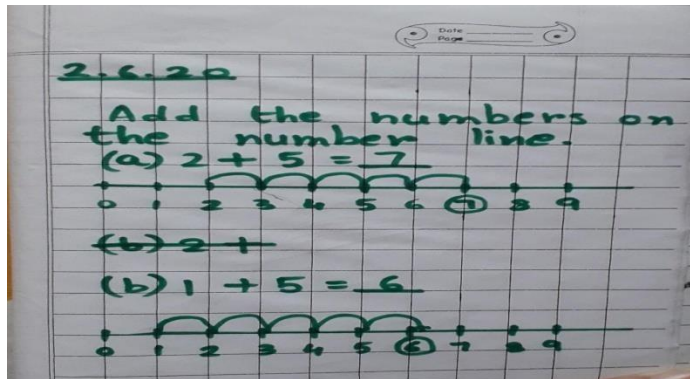 Date
Page
2.6.20
Add the numbers on
the number line.
(a) 2 + 5 = 7
0 1 2 3 4 5 6 7 8 9
(b) 2 +
(b) 1 + 5 = 6
0 1 2 3 4 5 6 7 8 9